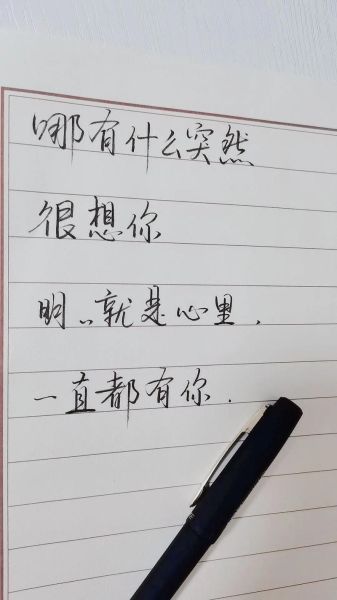 哪有什么突然
很想你
明明就是心里.
一直都有你.